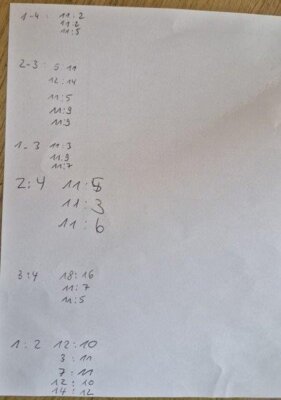 1-4 : 11 : 2
11 : 2
11 : 5
2-3 : 5 11
12 : 14
11 : 5
11 : 9
11 : 9
1-3 11 : 3
11 9
11 : 7
2 : 4 11 : 5
11 : 3
11 : 6
3 : 4 18 : 16
11 : 7
11 : 5
1 : 2 12 : 10
3 : 11
7 : 11
12 : 10
14 : 12